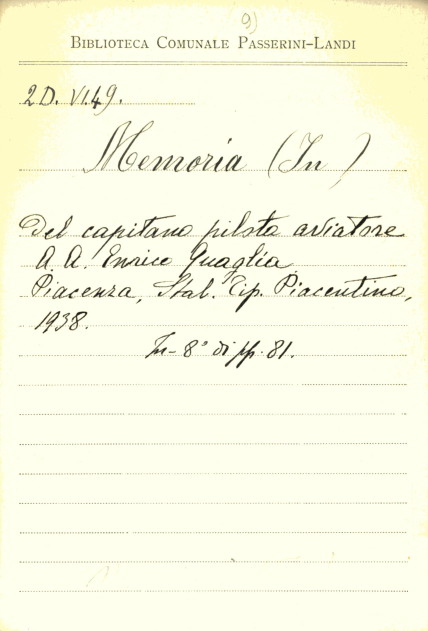 9)
BIBLIOTECA COMUNALE PASSERINI-LANDI
2D. VI.49.
Memoria (In)
Del capitano pilota aviatore
A. A. Enrico Quaglia.
Piacenza, Stab. Tip. Piacentino,
1938.
In-8° di pp. 81.